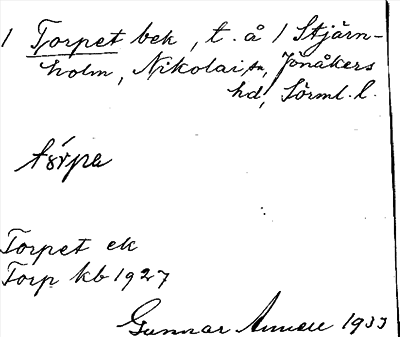 1 Torpet bek, t. å 1 Stjärn-
holm, Nikolai sn, Jönåkers
hd, Sörml. l.
tórpa
Torpet ek
Torp kb 1927
Gunnar 1933